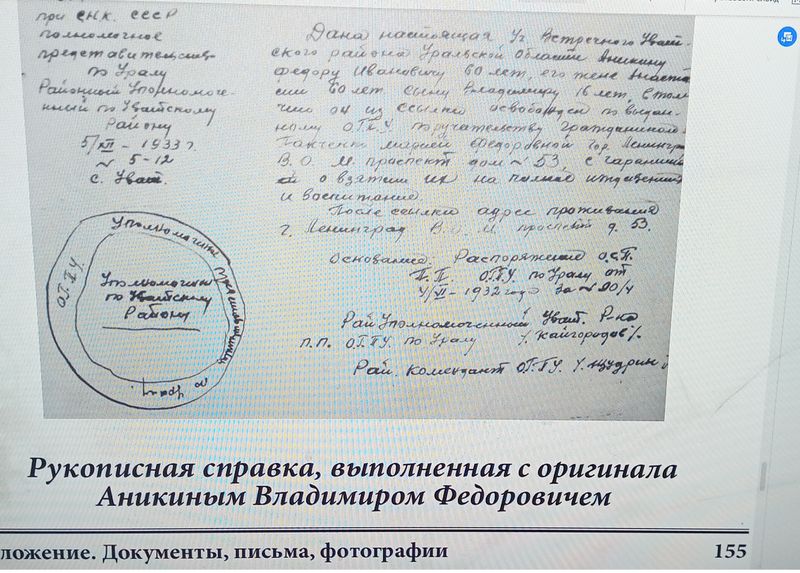 при СНК. СССР
полномочное
представительство
по Уралу
Районный Уполномоче-
нный по Уватскому
Району
5/XII - 1933 г.
№ 5-12
с. Уват.
Дана настоящая Уг. Встречного Уват-
ского района Уральской Области Аникину
Федору Ивановичу 60 лет, его жене
60 лет. сыну Владимиру 16 лет. в том
что он из ссылки освобожден по выдан-
ному О.Г.П.У. поручательству гражданиной
Марией Федоровной Гор. Ленинг
В. О. М. проспект дом № 53, с
о взятии их на полное иждивения
и воспитание.
После ссылки адрес проживания
г. Ленинград В. О. М. проспект д. 53.
Основание. Распоряжение
П. П. О.Г.П.У. по Уралу от
- 1932 года за №
Рай Уполномоченный Уват. Р-на
п.п. О.Г.П.У. по Уралу /. Кайгородов /.
Рай. Комендант О.Г.П.У. /. Щудрин /
О.Г.П.У. Уполномочен
по Уралу
Уполномочен-
по Уватскому
Району
Рукописная справка, выполненная с оригинала
Аникиным Владимиром Федоровичем
ложение. Документы, письма, фотографии 155